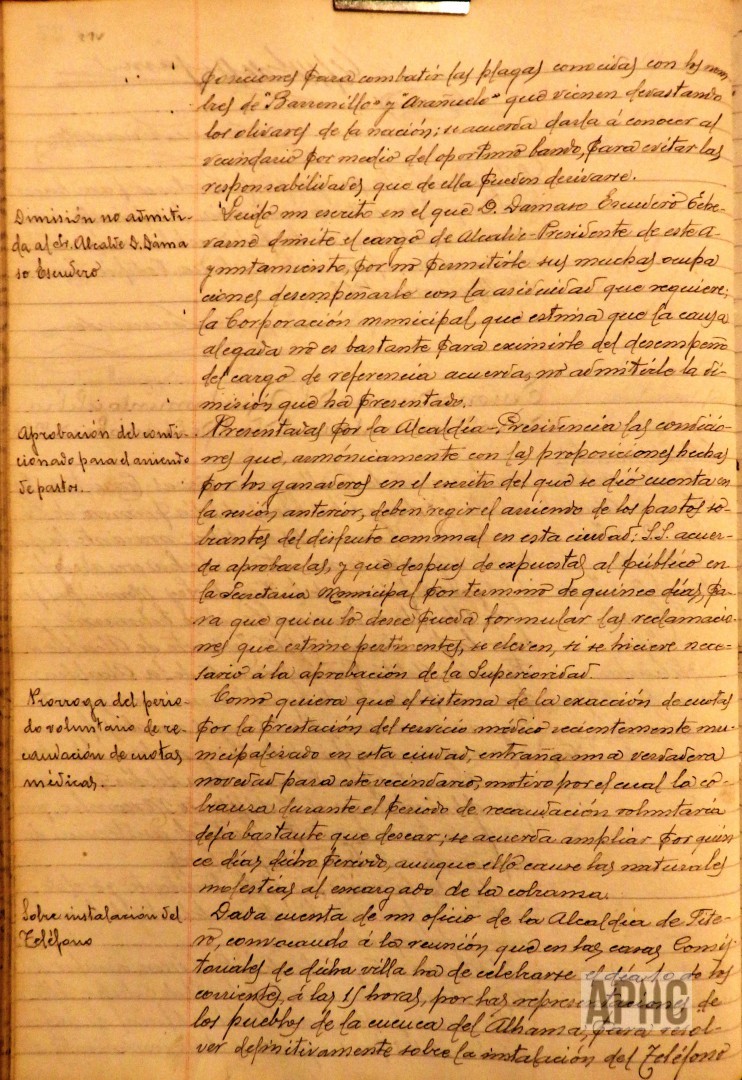 posiciones para combatir las plagas conocidas con los nom-
bres de "Barrenillo" y "Arañuelo" que vienen devastando
los olivares de la nación; se acuerda darla á conocer al
vecindario por medio del oportuno bando, para evitar las
responsabilidades que de ella pueden derivarse.
Dimisión no admiti-
da al Sr. Alcalde D. Dáma
so Escudero
Leido un escrito en el que D. Damaso Escudero Eche-
varne dimite el cargo de Alcalde-Presidente de este A-
yuntamiento, por no permitirle sus muchas ocupa
ciones desempeñarlo con la asiduidad que requiere;
la Corporación municipal, que estima que la causa
alegada no es bastante para eximirle del desempeño
del cargo de referencia acuerda, no admitirle la di-
misión que ha presentado.
Aprobación del condi-
cionado para el arriendo
de pastos.
Presentadas por la Alcaldía-Presidencia las condicio-
nes que, armónicamente con las proposiciones hechas
por los ganaderos en el escrito del que se dió cuenta en
la sesión anterior, deben regir el arriendo de los pastos so-
brantes del disfrute comunal en esta ciudad; S.S. acuer-
da aprobarlas, y que despues de expuestas al público en
la Secretaria Municipal por termino de quince días, pa-
ra que quien lo desee pueda formular las reclamacio-
nes que estime pertinentes, se eleven, si se hiciere nece-
sario á la aprobación de la Superioridad.
Prorroga del perio-
do voluntario de re-
caudación de cuotas
médicas.
Como quiera que el sistema de la exacción de cuotas
por la prestación del servicio médico recientemente mu-
nicipalizado en esta ciudad, entraña una verdadera
novedad para este vecindario, motivo por el cual la co-
branza durante el periodo de recaudación voluntaria
deja bastante que desear; se acuerda ampliar por quin
ce días dicho período, aunque ello cause las naturales
molestias al encargado de la cobranza.
Sobre instalación del
Teléfono
Dada cuenta de un oficio de la Alcaldía de Fite-
ro, convocando á la reunión que en las casas Consis-
toriales de dicha villa ha de celebrarse el día de los
corrientes, á las 15 horas, por las representaciones de
los pueblos de la cuenca del Alhama, para resol-
ver definitivamente sobre la instalación del Teléfono
APHC